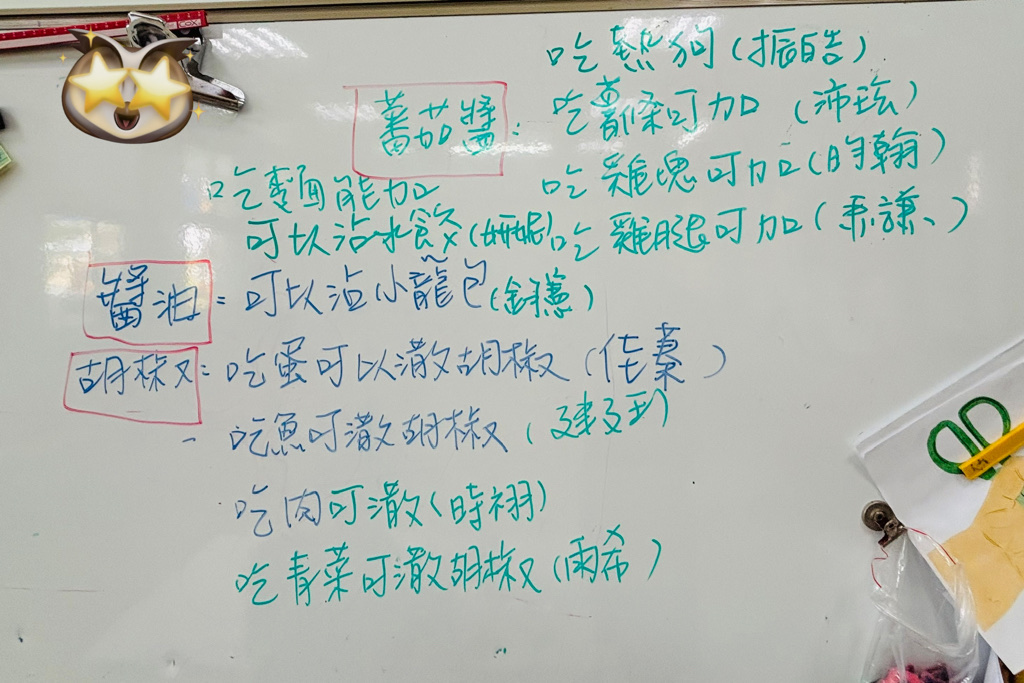 吃熱狗(振皓)
蕃茄醬: 吃薯條可加(沛玹)
吃雞塊可加(昀翰)
吃雞腿可加(秉謙)
吃麵能加
可以沾水餃(妍妮)
醬油: 可以沾小籠包(鈴憓)
胡椒: 吃蛋可以潵胡椒(佳蓁)
吃魚可潵胡椒(
吃肉可潵(時祤)
吃青菜可潵胡椒(雨希)